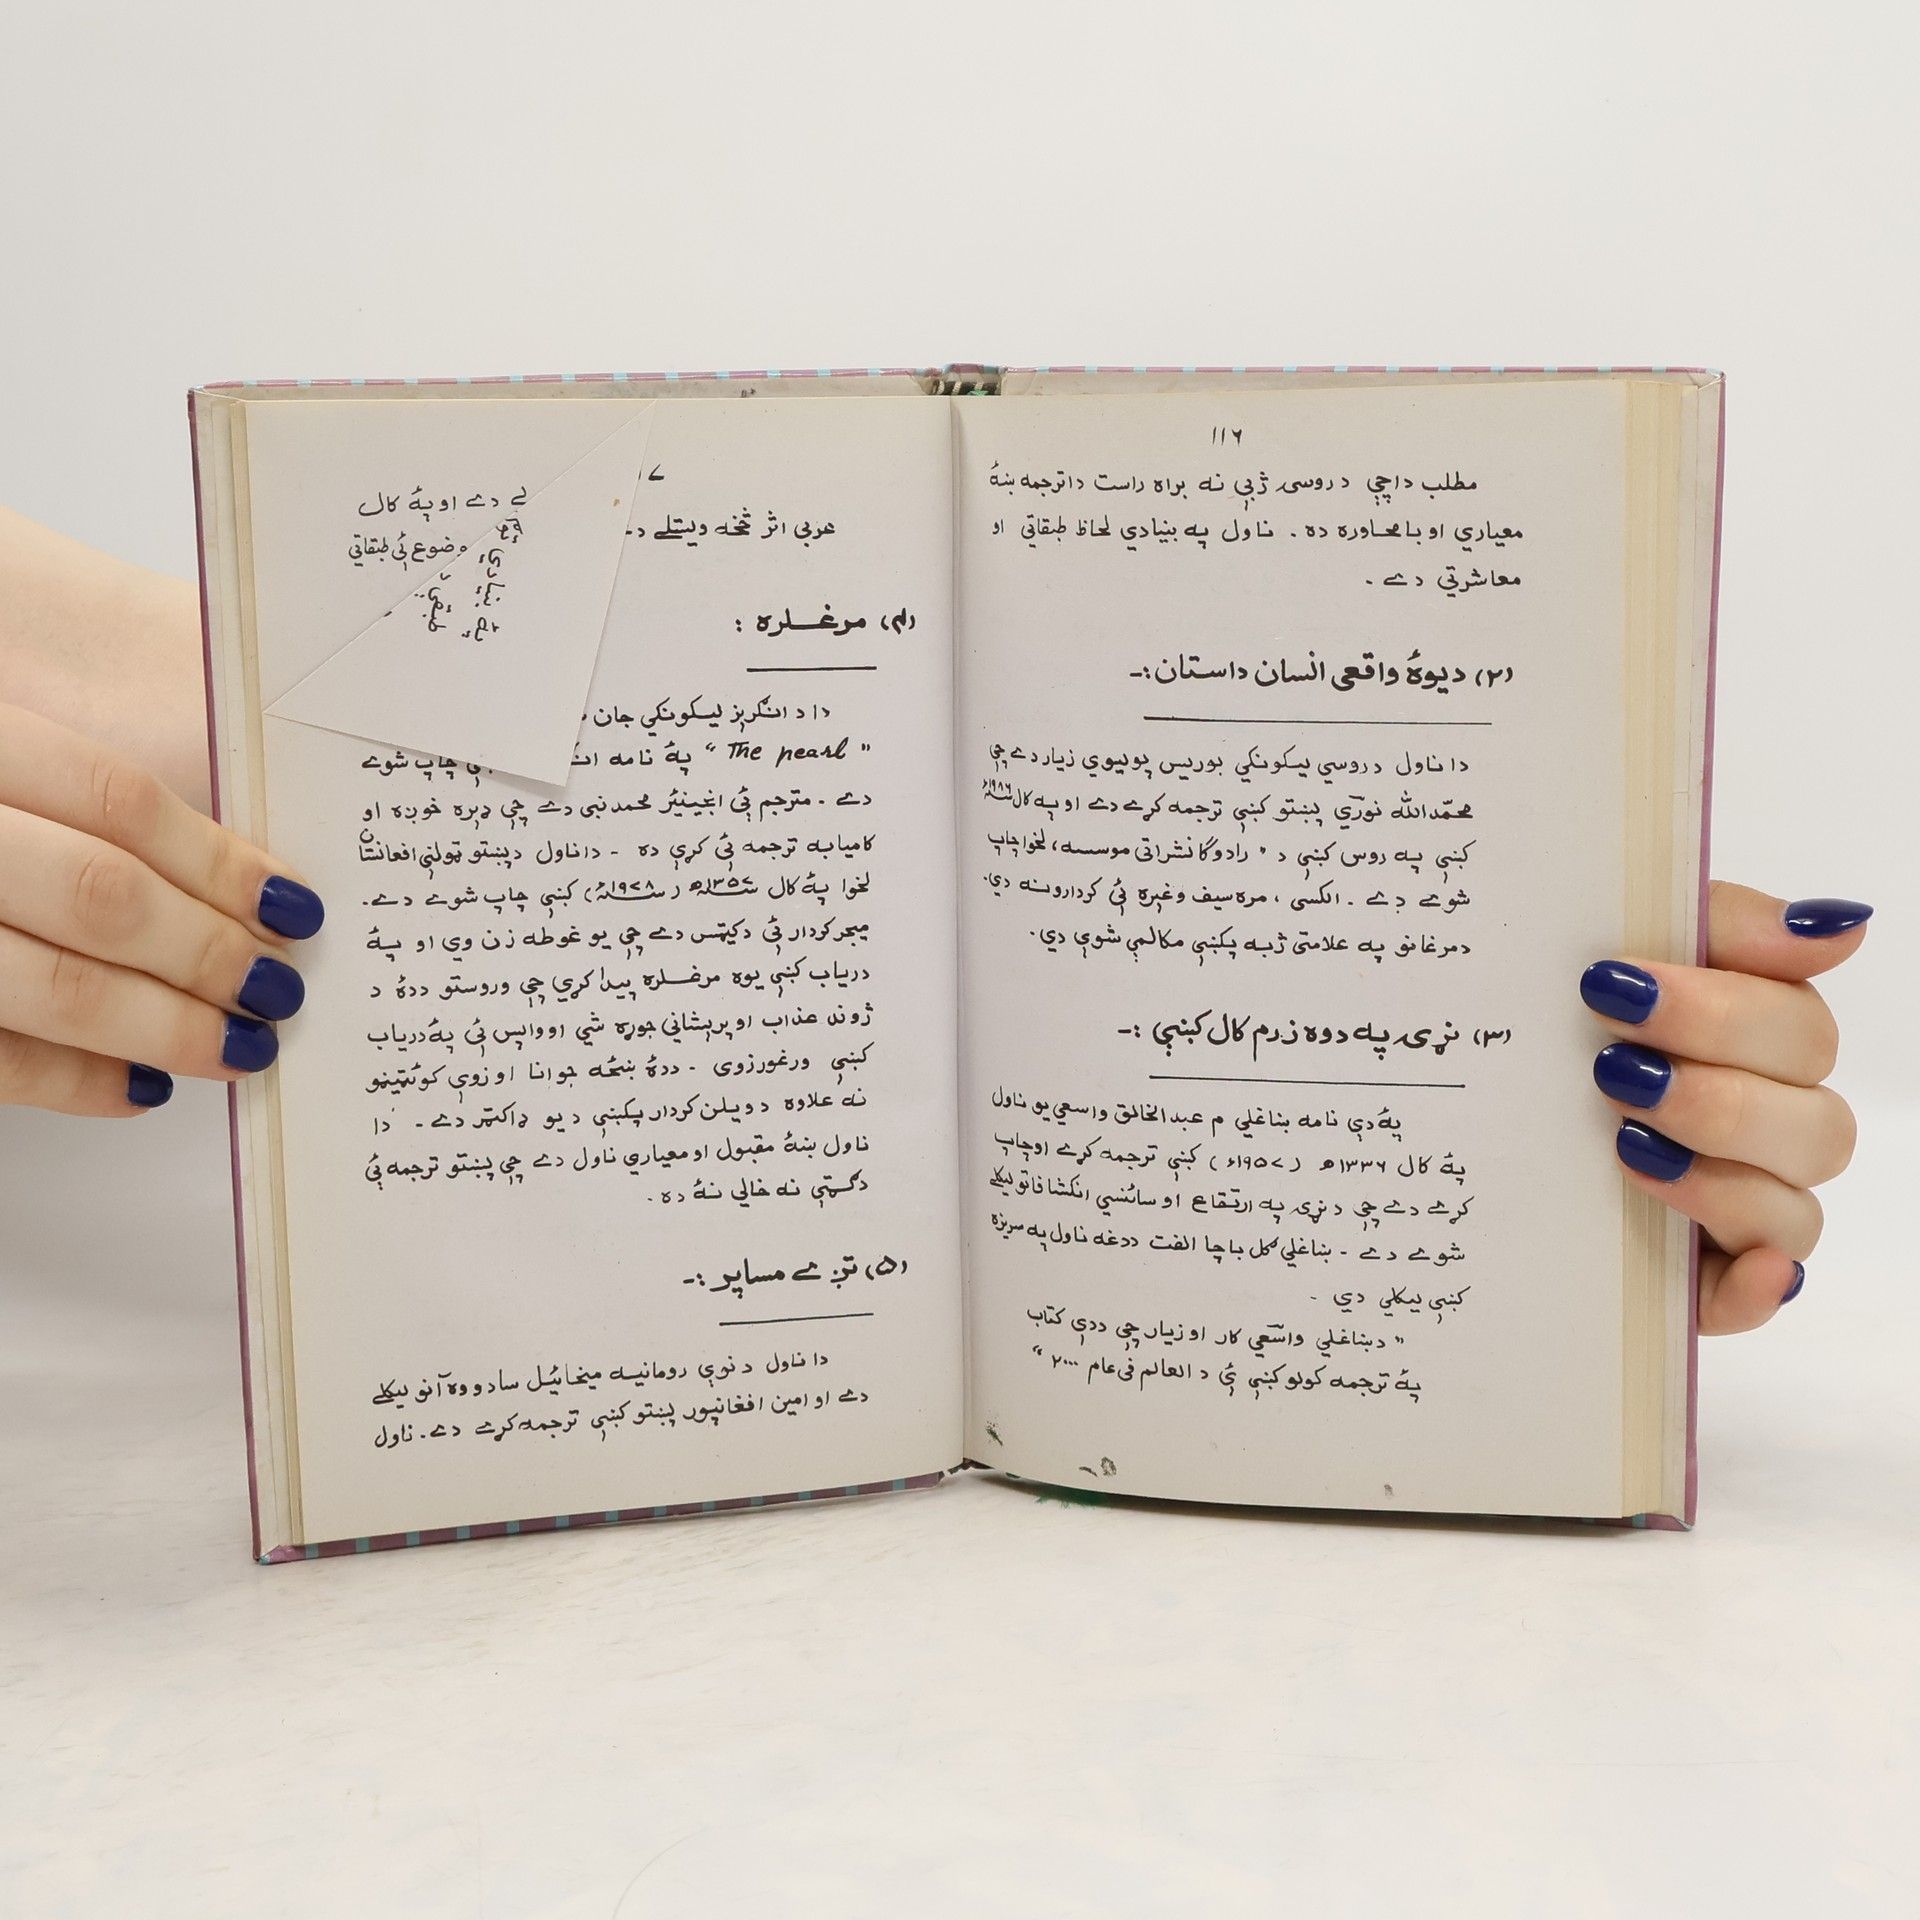 ۱۱۶
مطلب داچې د روسی ژبې نه براه راست دا ترجمه ښهٔ
معیاري او بامحاوره ده . ناول په بنیادي لحاظ طبقاتي او
معاشرتي دے .
(۲) دیوهٔ واقعی انسان داستان :-
دا ناول د روسي لیکونکي بوریس پولیوي زیار دے چې
محمّد الله نورۍ پښتو کښې ترجمه کړے دے او په کال ۱۹۸۶ء
کښې په روس کښې د " رادوګا نشراتی موسسه، لخوا چاپ
شوے دے . الکسی ، مره سیف وغېره ئې کردارونه دي.
د مرغانو په علامتی ژبه پکښې مکالمې شوې دي.
(۳) نړۍ په دوه زرم کال کښې :-
پهٔ دې نامه ښاغلي م عبدالخالق واسعي یو ناول
پهٔ کال ۱۳۳۶ھ (۱۹۵۷ء) کښې ترجمه کړے او چاپ
کړے دے چې د نړۍ په ارتقاع او سائنسي انکشافاتو لیکلے
شوے دے - ښاغلي ګل باچا الفت ددغه ناول په سریزه
کښې لیکلي دي .
" د ښاغلي واسعي کار او زیار چې ددې کتاب
پهٔ ترجمه کولو کښې ئې د العالم فی عام ۲۰۰۰ "
۷
عربي اثر څخه ویستلے د
لے دے او پهٔ کال
وضوع ئې طبقاتي
پهٔ بنیادي
(۴) مرغلره :
دا د انګریز لیکونکي جان
" The pearl " پهٔ نامه چاپ شوے
دے . مترجم ئې انجینیئر محمد نبی دے چې ډېره خوږه او
کامیابه ترجمه ئې کړې ده - دا ناول د پښتو ټولنې افغانستان
لخوا پهٔ کال ۱۳۵۷ھ (۱۹۷۸ء) کښې چاپ شوے دے .
میجر کردار ئې د کیټس دے چې یو غوطه زن وي او پهٔ
دریاب کښې یوه مرغلره پیدا کړي چې وروستو ددهٔ د
ژوند عذاب او پرېشاني جوړه شي او واپس ئې پهٔ دریاب
کښې ورغورزوي - ددهٔ ښځه جوانا او زوې کوئټیټو
نه علاوه د ویلن کردار پکښې د یو ډاکټر دے - دا
ناول ښهٔ مقبول او معیاري ناول دے چې پښتو ترجمه ئې
د ګټې نه خالي نهٔ ده .
(۵) تږے مساپر :-
دا ناول د نوې رومانیه میخائیل سادووه آنو لیکلے
دے او امین افغانپور پښتو کښې ترجمه کړے دے . ناول